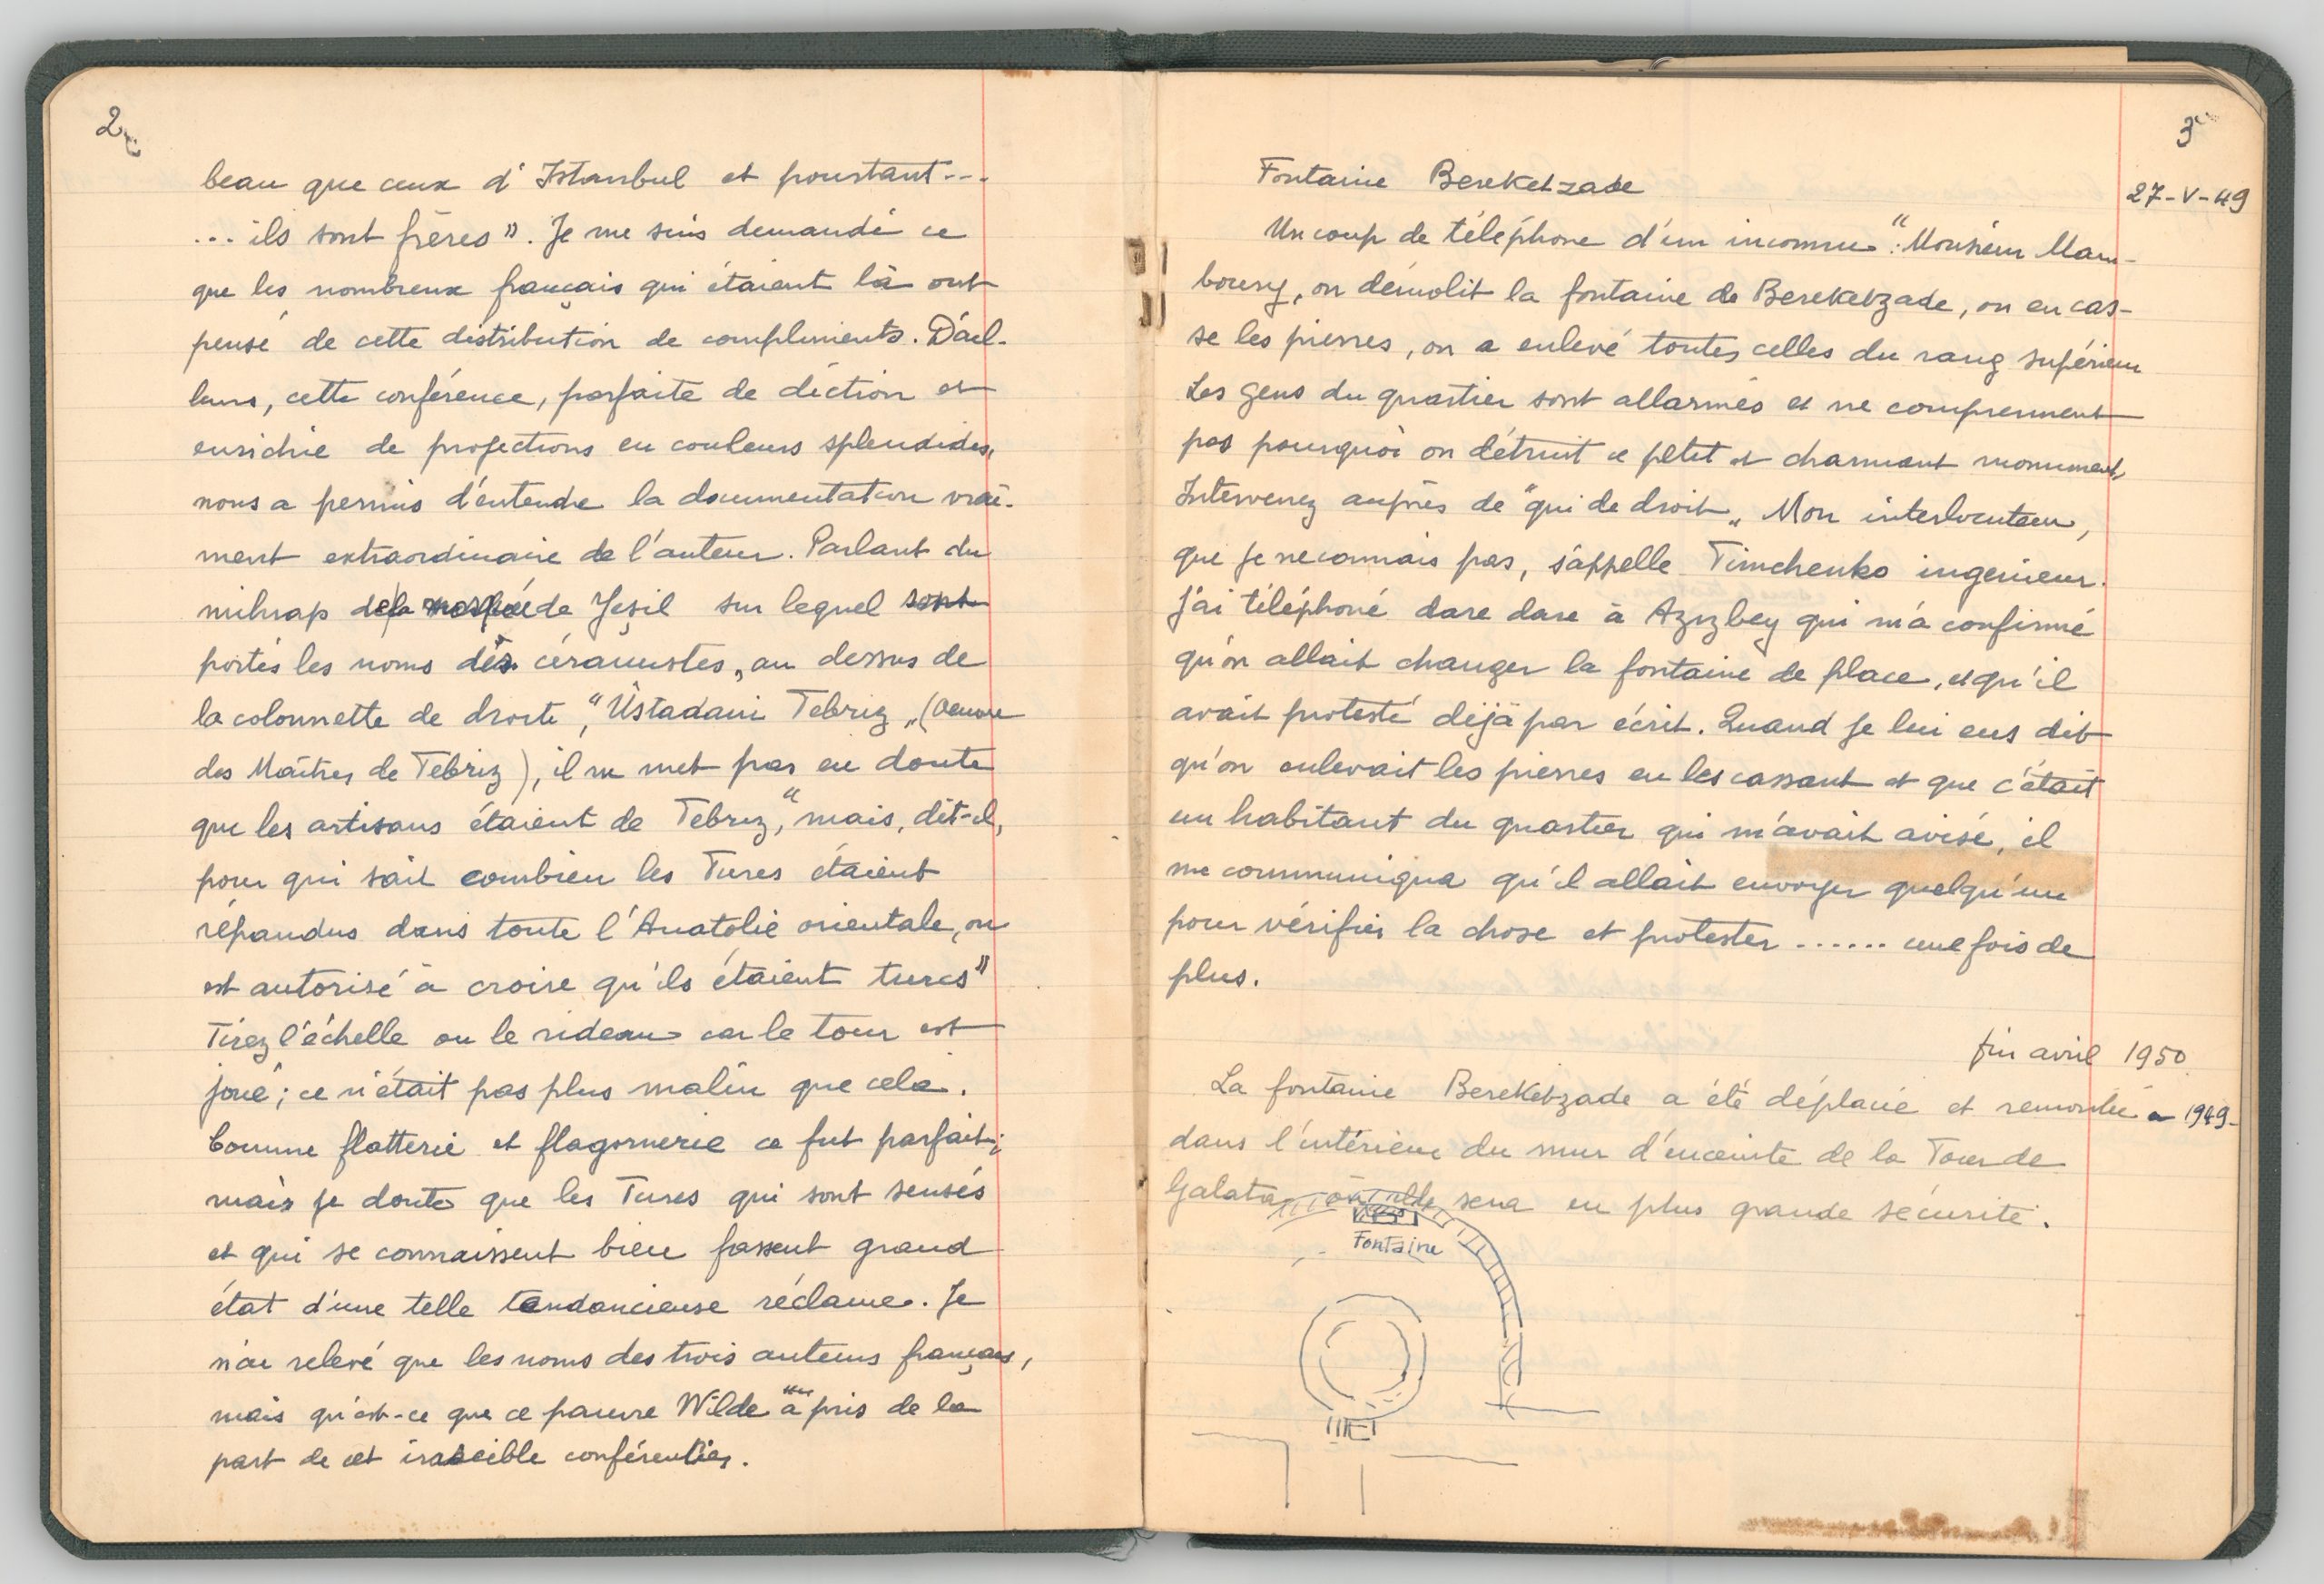 2
beau que ceux d'Istanbul et pourtant...
... ils sont frères". Je me suis demandé ce
que les nombreux français qui étaient là ont
pensé de cette distribution de compliments. D'ail-
leurs, cette conférence, parfaite de diction et
enrichie de projections en couleurs splendides,
nous a permis d'entendre la documentation vrai-
ment extraordinaire de l'auteur. Parlant du
mihrap de la mosquée de Yeşil sur lequel sont
portés les noms des céramistes, au dessus de
la colonnette de droite, "Üstadani Tebriz" (Oeuvre
des Maîtres de Tebriz), il ne met pas en doute
que les artisans étaient de Tebriz, "mais, dit-il,
pour qui sait combien les Turcs étaient
répandus dans toute l'Anatolie orientale, on
est autorisé à croire qu'ils étaient turcs"
Tirez l'échelle ou le rideau car le tour est
joué; ce n'était pas plus malin que cela.
Comme flatterie et flagornerie ce fut parfait;
mais je doute que les Turcs qui sont sensés
et qui se connaissent bien fassent grand
état d'une telle tendancieuse réclame. Je
n'ai relevé que les noms des trois auteurs français,
mais qu'est-ce que ce pauvre Wilde a pris de la
part de cet irascible conférencier.
3
27-V-49
Fontaine Bereketzade
Un coup de téléphone d'un inconnu: "Monsieur Mam-
boury, on démolit la fontaine de Bereketzade, on en cas-
se les pierres, on a enlevé toutes celles du rang supérieur
Les gens du quartier sont allarmés et ne comprennent
pas pourquoi on détruit ce petit et charmant monument,
Intervenez auprès de "qui de droit" Mon interlocuteur,
que je ne connais pas, s'appelle Timchenko ingenieur.
J'ai téléphoné dare dare à Aziz bey qui m'a confirmé
qu'on allait changer la fontaine de place, et qu'il
avait protesté déjà par écrit. Quand je lui eus dit
qu'on enlevait les pierres en les cassant et que c'était
un habitant du quartier qui m'avait avisé, il
me communiqua qu'il allait envoyer quelqu'un
pour vérifier la chose et protester ...... une fois de
plus.
fin avril 1950
La fontaine Bereketzade a été déplacée et remontée en 1949-
dans l'intérieur du mur d'enceinte de la Tour de
Galata, où elle sera en plus grande sécurité.
Fontaine